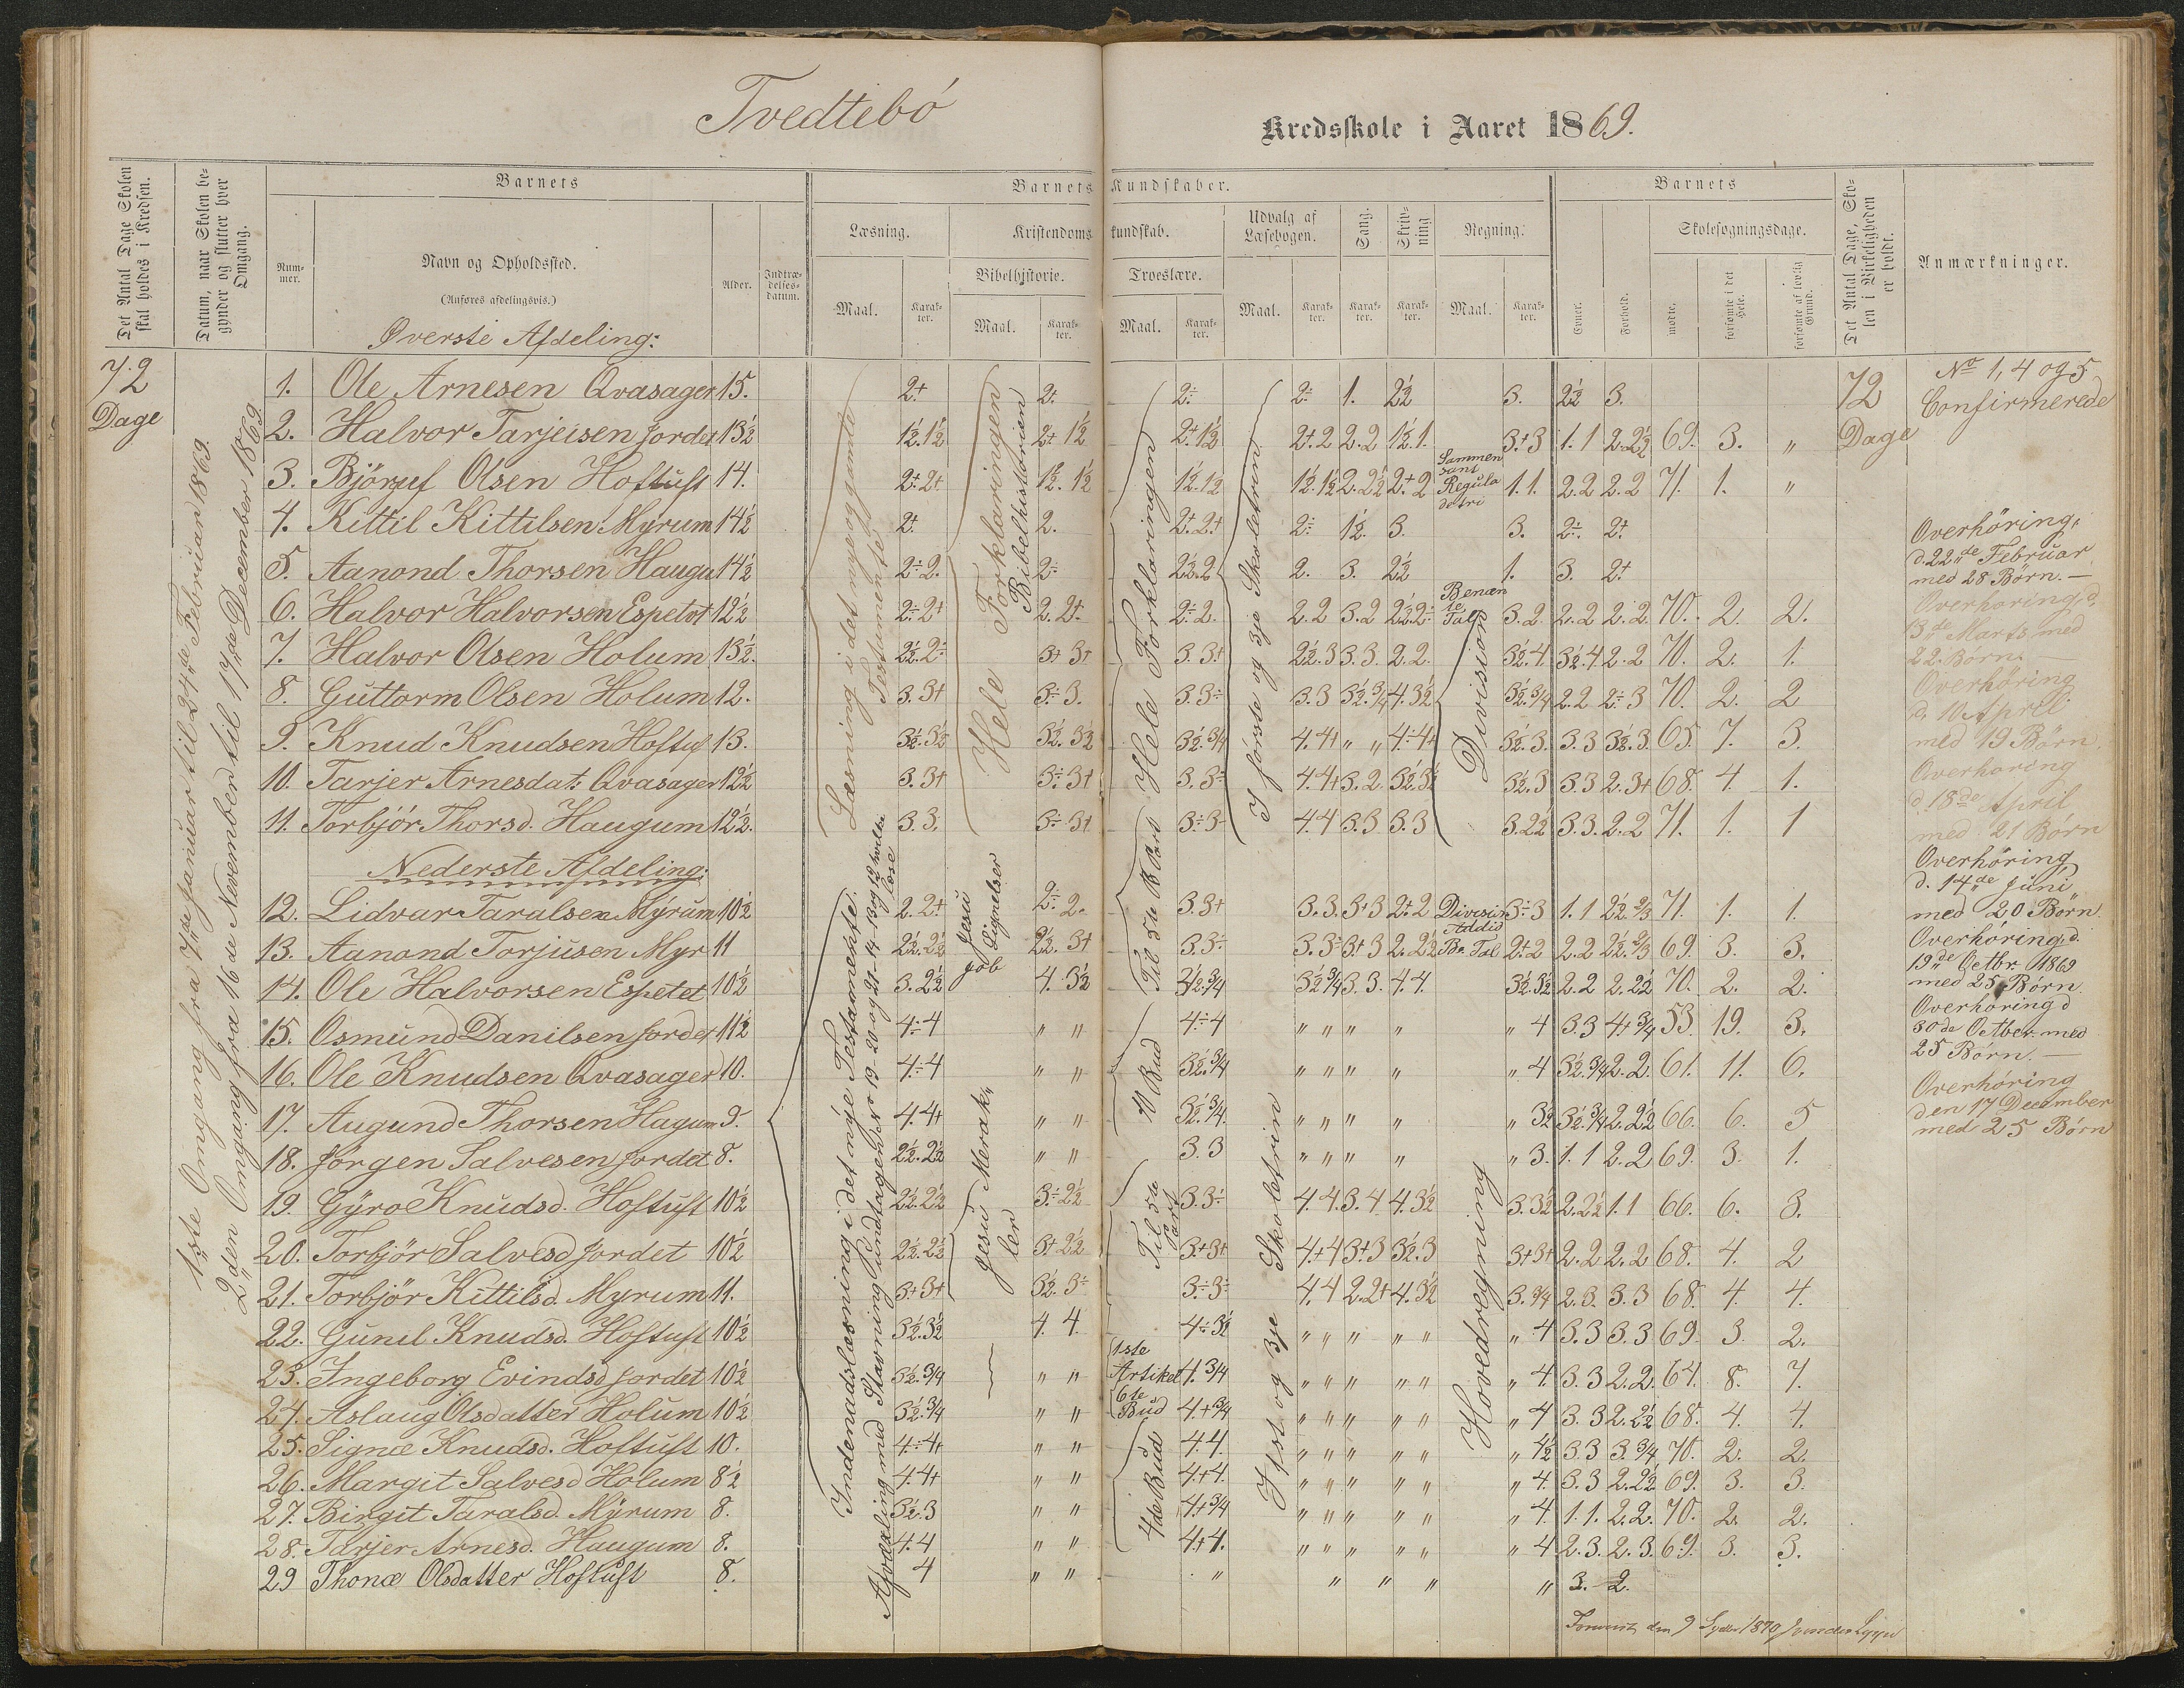 Tvedtebö
Kredsskole i Aaret 1869.
Det Antal Dage Skolen skal holdes i Kredsen.
Datum, naar Skolen begynder og slutter hver Omgang.
Barnets
Nummer.
Navn og Opholdssted.
(Anføres afdelingsvis.)
Alder.
Indtrædelsesdatum.
Barnets Kundskaber.
Læsning.
Kristendomskundskab.
Bibelhistorie.
Troeslære.
Udvalg af Læsebogen.
Sang.
Skrivning
Regning.
Maal.
Karakter.
Maal.
Karakter.
Maal.
Karakter.
Maal.
Karakter.
Karakter.
Karakter.
Maal.
Karakter.
Barnets
Evner.
Forhold.
Skolesøgningsdage.
mødte.
forsømte i det Hele.
forsømte af lovlig Grund.
Det Antal Dage, Skolen i Virkeligheden er holdt.
Anmærkninger.
72
Dage
1ste Omgang fra 7de Januar til 24de Februar 1869.
2den Omgang fra 16de November til 17de December 1869
Øverste Afdeling:
1. Ole Arnesen Qvasager 15. 2+ 2+ 2÷ 2÷ 1. 2½ 3. 2½ 3.
2. Halvor Tarjeisen Jordet 13½ 1½.1½ 2+ 1½ 2+.1½ 2+.2 2.2 1½.1. 3+3 1.1 2.2½ 69. 3. „
3. Björguf Olsen Hoftuft 14. 2+.2+ 1½.1½ 1½.1½ 1½.1½ 2.2½ 2+.2 1.1. 2.2 2.2 71. 1. „
4. Kittil Kittilsen Myrum 14½ 2+ 2. 2+.2+ 2÷ 1½. 3. 3. 2÷. 2+
5. Aanond Thorsen Haugu 14½ 2÷2. 2÷ 2½.2 2. 3. 2½ 1. 3. 2+
6. Halvor Halvorsen Espetvt 12½ 2÷2+ 2.2+. 2÷2. 2.2 3.2 2½.2÷ 3.2 2.2 2.2. 70. 2. 2.
7. Halvor Olsen Holum 13½. 2½.2÷ 3+ 3+ 3.3+ 2½.3 3.3. 2.2. 3½.4. 3½.4 2.2 70. 2. 1.
8. Guttorm Olsen Holum 12. 3.3+ 3÷3. 3.3÷ 3.3 3½.¾ 4.3½ 3½.¾ 2.2 2÷3 70. 2. 2
9. Knud Knudsen Hoftuf 13. 3½.3½ 3½.3½ 3½.¾ 4.4+ „ „ 4÷4+ 3½.3. 3.3 3½.3. 65. 7. 3.
10. Tarjer Arnesdat: Qvasager 12½ 3.3+ 3÷3+ 3.3÷ 4.4+ 3.2 3½.3½ 3½.3 3.3 2.3+ 68. 4. 1.
11. Torbjör Thorsd. Haugum 12½. 3.3. 3÷3+ 3÷3- 4.4 3.3 3.3 3.2½ 3.3. 2.2 71. 1. 1
Læsning i det nye og gamle Testamente
Hele Forklaringen
Bibelhistorien
Hele Forklaringen
I förste og 3je Skoletrin
Sammensat Regula detri
Benævnte Tal
Division
Nederste Afdeling:
12. Lidvar Taralsen Myrum 10½ 2.2+ 2÷2. 3.3+ 3.3. 3+3 2+2 3÷3 1.1 2½ ⅔ 71. 1. 1.
13. Aanond Torjusen Myr 11 2½.2½ 2½.3+ 3.3÷ 3.3÷ 3+3 2.2½ 2+2 2.2 2½.⅔ 69. 3. 3.
14. Ole Halvorsen Espetet 10½ 3.2½ 4.3½ 3½.¾ 3½ ¾ 3.3. 4.4. 3½.3½ 2.2 2.2½ 70. 2. 2.
15. Osmund Danilsen Jordet 11½ 4÷4 „ „ 4÷4 „ „ „ „ „ 4 3.3 4+¾ 53. 19. 3.
16. Ole Knudsen Qvasager 10. 4÷4 „ „ 3½.¾ „ „ „ „ „ 4 3½.¾ 2.2. 61. 11. 6.
17. Augund Thorsen Hagum 9. 4.4+ „ „ 3½.¾. „ „ „ „ „ 3½ 3½.¾ 2.2½ 66. 6. 5
18. Jörgen Salvesen Jordet 8. 2½.2½ „ „ 3.3 „ „ „ „ „ 3. 1.1 2.2 69. 3. 1.
19. Gÿro Knudsd. Hoftuft 10½ 2½.2½ 3÷2½ 3.3÷ 4.4. 3.4 4.3½ 3.3½ 2.2½ 1.1 66. 6. 3.
20. Torbjör Salvesd Jordet 10½ 2½.2½ 3+2½ 3+3+ 4+4 3+3 3½.3 3+3+ 2.2 2.2 68. 4. 2
21. Torbjör Kittilsd. Myrum 11. 3+3+ 3½.3÷ 3÷3÷ 4.4 2.2+ 4.3½ 3.¾ 2.3. 3.3 68. 4. 4.
22. Gunil Knudsd. Hoftuft 10½ 3½.3½ 4.4. 4÷3½ „ „ „ „ „ „ 4 3.3 3.3 69. 3. 2.
23. Ingeborg Evindsd Jordet 10½ 3½.¾ „ „ 4.¾ „ „ „ „ „ „ 4. 3.3 2.2. 64. 8. 7.
24. Aslaug Olsdatter Holum 10½ 3½.¾ „ „ 4+¾ „ „ „ „ „ „ 4 3.3 2.2½ 68. 4. 4.
25. Signæ Knudsd. Hoftuft 10. 4÷4+ „ „ 4.4. „ „ „ „ „ „ 4½ 3.3 3.¾ 70. 2. 2.
26. Margit Salvesd Holum 8½ 4.4+ „ „ 4.+4. „ „ „ „ „ „ 4. 3.3 2.2½ 69. 3. 3.
27. Birgit Taralsd. Myrum 8. 3½.3 „ „ 4+¾ „ „ „ „ „ „ 4. 1.1. 2.2. 70. 2. 2.
28. Tarjer Arnesd. Haugum 8. 4.4 „ „ 4+4. „ „ „ „ „ „ 4 2.3. 2.3. 69. 3. 3.
29 Thonæ Olsdatter Hoftuft 8. 4 „ „ „ „ „ „ „ 3. 2.
Indenadslæsning i det nye Testamente.
Afvexling med Stavning Undtagen No 19-20 og 21-14-13 og 12 hvilke læse
Jesu Lignelser
Job
Jesu Merakler
Til 5te B Part
10 Bud
Til 5te Part
1ste Artikel
6te Bud
4de Bud
I 1st og 3je Skoletrin
Division
Addid
Be. Tal
Hovedregning
72
Dage
No 1, 4 og 5
Confirmerede
Overhöring,
d. 22de Februar
med 28 Börn. —
Overhöring, d.
13de Marts med
22. Börn. —
Overhöring
d. 10 April
med 19 Börn.
Overhöring
d. 18de April
med 21 Börn
Overhöring
d. 14de Juni
med 20 Börn.
Overhöring, d.
19de Octbr. 1869
med 25 Börn.
Overhöring d
30de Octber med
25 Börn. —
Overhöring
den 17 December
med 25 Börn
den 9 1870